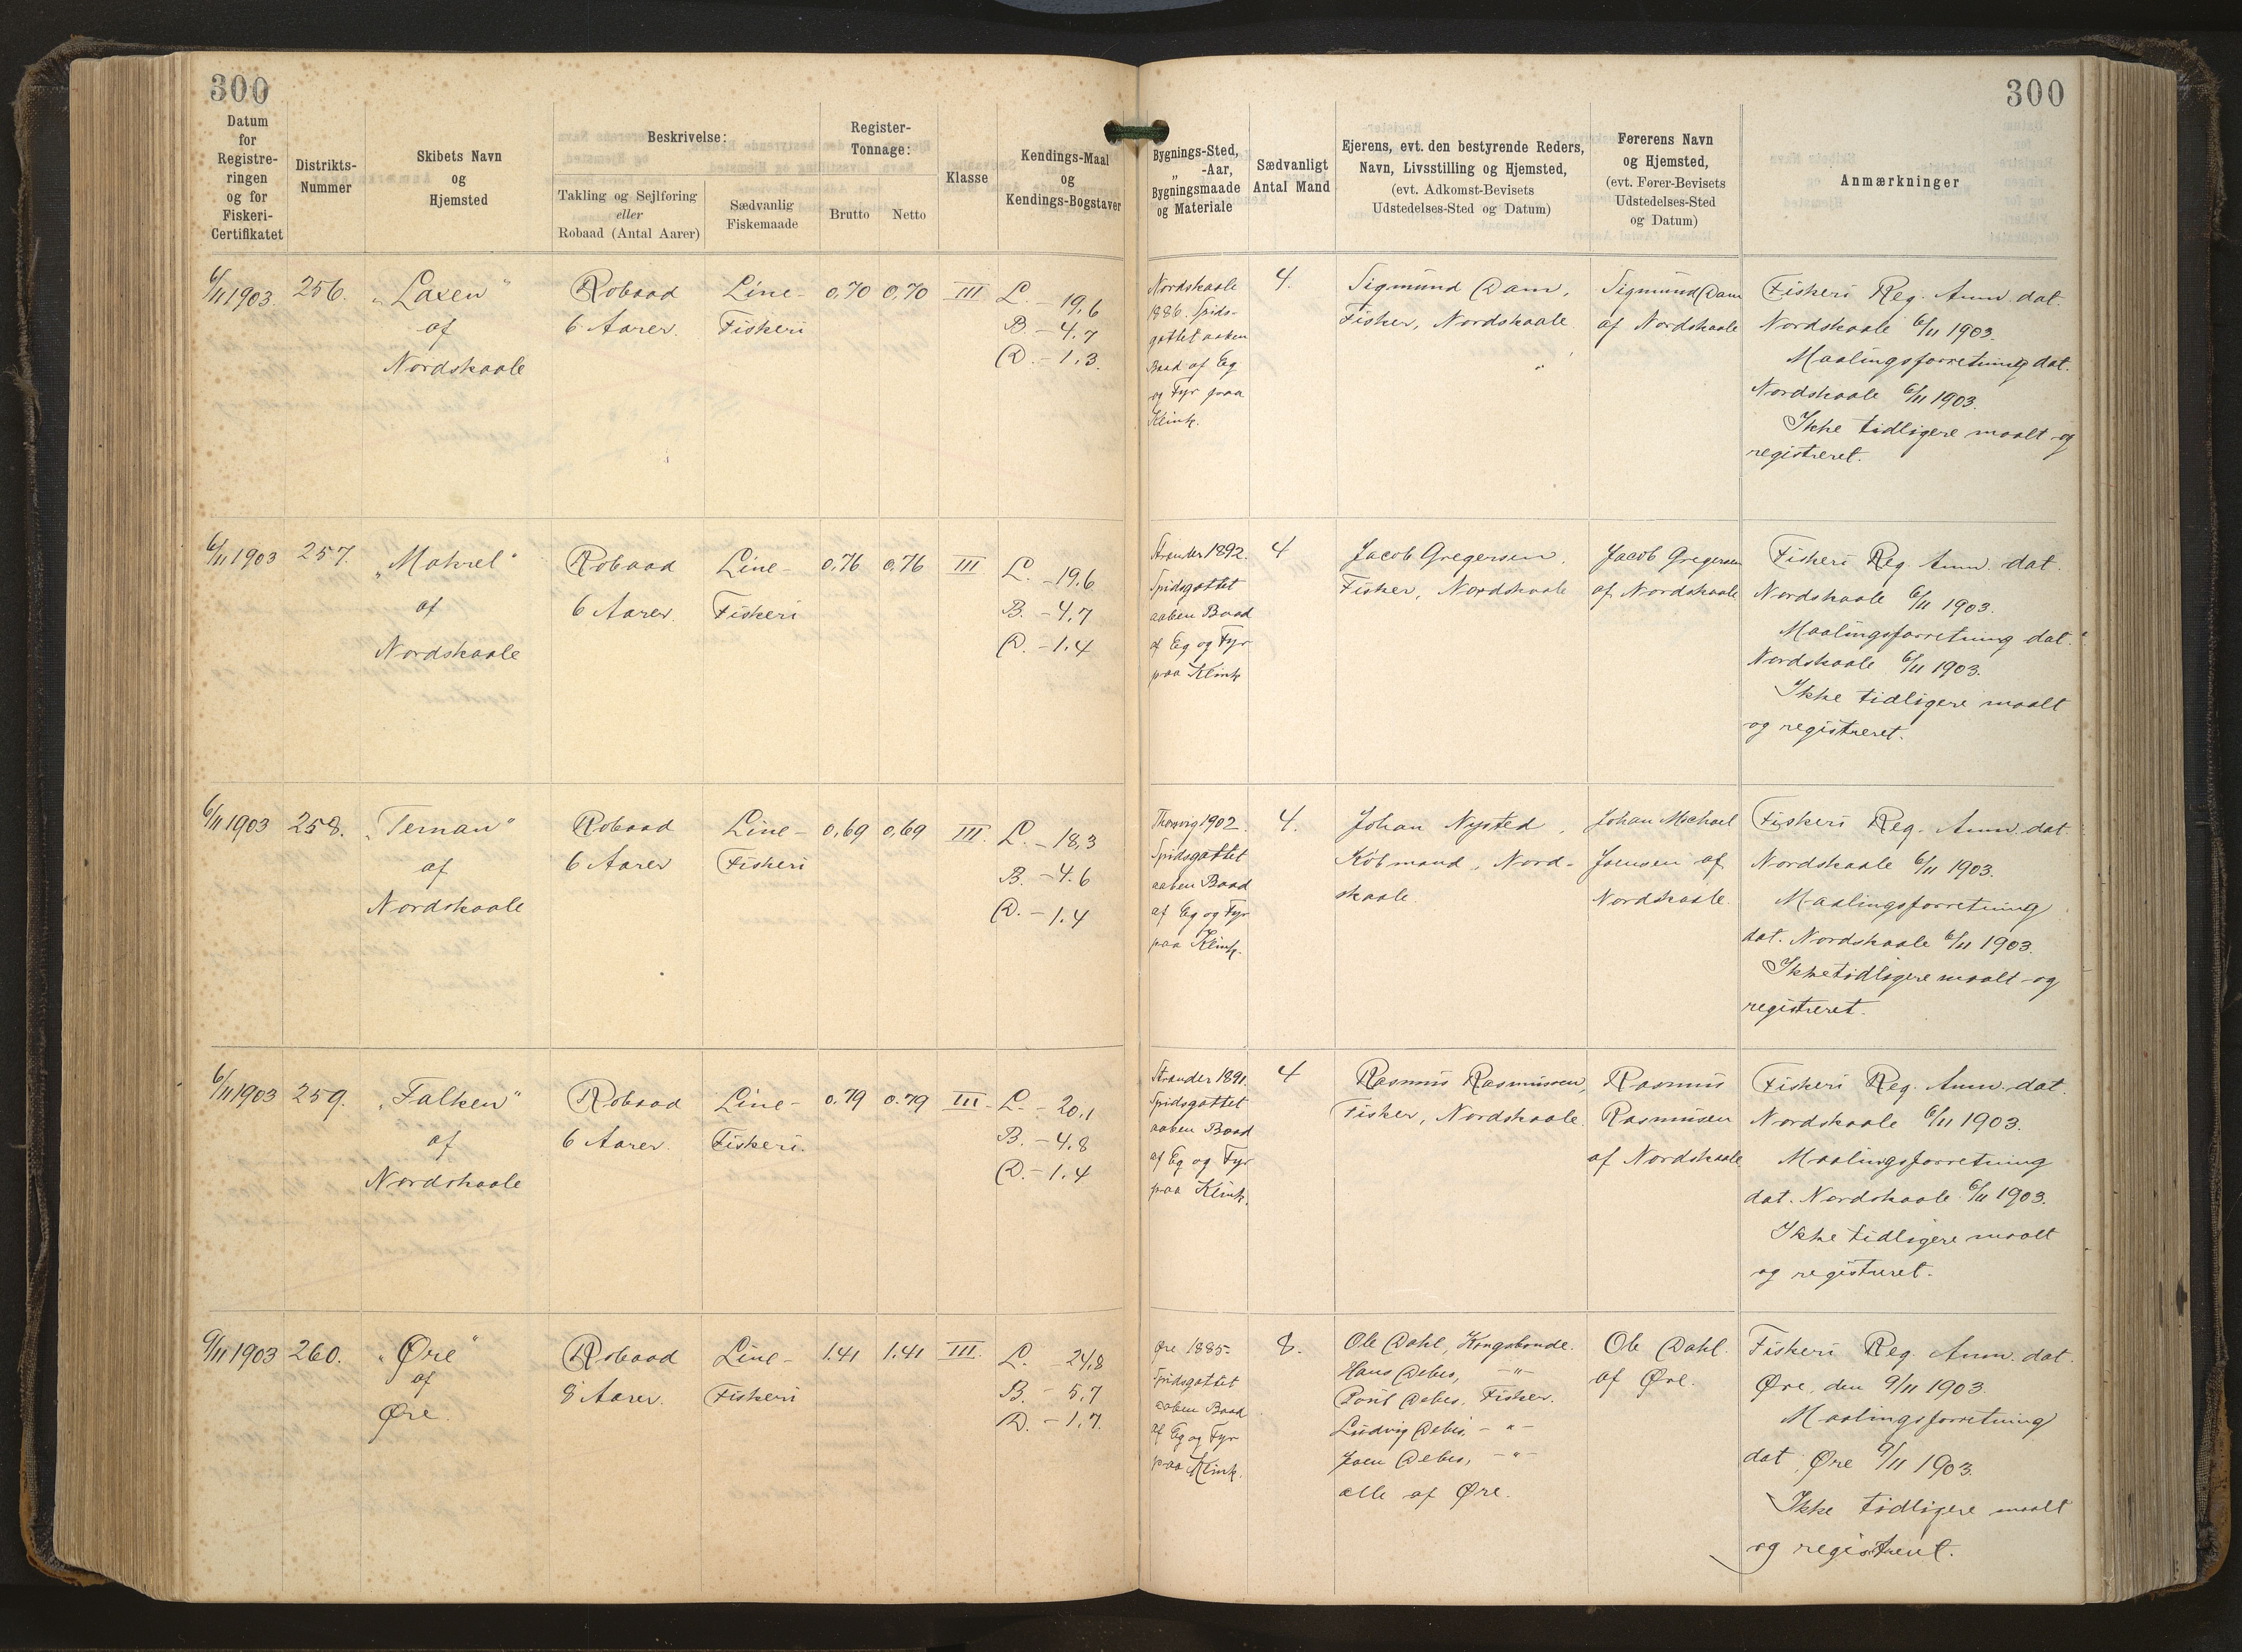 300
300
Datum
for
Registre-
ringen
og for
Fiskeri-
Certifikatet
Distrikts-
Nummer
Skibets Navn
og
Hjemsted
Beskrivelse:
Takling og Sejlføring
eller
Robaad (Antal Aarer)
Sædvanlig
Fiskemaade
Register-
Tonnage:
Brutto
Netto
Klasse
Kendings-Maal
og
Kendings-Bogstaver
Bygnings-Sted,
„ -Aar,
Bygningsmaade
og Materiale
Sædvanligt
Antal Mand
Ejerens, evt. den bestyrende Reders,
Navn, Livsstilling og Hjemsted,
(evt. Adkomst-Bevisets
Udstedelses-Sted og Datum)
Førerens Navn
og Hjemsted,
(evt. Fører-Bevisets
Udstedelses-Sted
og Datum)
Anmærkninger
6/11 1903.
256.
„Laxen"
af
Nordskaale
Robaad
6 Aarer.
Line-
Fiskeri
0,70
0,70
III
L. - 19,6
B. - 4,7
D. - 1,3.
Nordskaale
1886. Spids-
gattet aaben
Baad af Eg
og Fyr paa
Klink.
4.
Sigmund Dam,
Fisker, Nordskaale
Sigmund Dam
af Nordskaale
Fiskeri Reg. Anm. dat.
Nordskaale 6/11 1903.
Maalingsforretning dat.
Nordskaale 6/11 1903.
Ikke tidligere maalt og
registreret.
6/11 1903
257.
„Makrel"
af
Nordskaale
Robaad
6 Aarer.
Line-
Fiskeri
0,76
0,76
III
L. - 19,6
B. - 4,7
D. - 1,4
Strander 1892.
Spidsgattet
aaben Baad
af Eg og Fyr
paa Klink
4
Jacob Gregersen,
Fisker, Nordskaale
Jacob Gregersen
af Nordskaale
Fiskeri Reg. Anm. dat.
Nordskaale 6/11 1903.
Maalingsforretning dat.
Nordskaale 6/11 1903.
Ikke tidligere maalt
og registreret.
6/11 1903
258.
„Ternan"
af
Nordskaale
Robaad
6 Aarer
Line-
Fiskeri
0,69
0,69
III.
L. - 18,3
B. - 4.6
D. - 1.4
Thorsvig 1902.
Spidsgattet
aaben Baad
af Eg og Fyr
paa Klink.
4.
Johan Nysted,
Købmand, Nord-
skaale.
Johan Michael
Joensen af
Nordskaale.
Fiskeri Reg. Anm. dat.
Nordskaale 6/11 1903.
Maalingsforretning
dat. Nordskaale 6/11 1903.
Ikke tidligere maalt og
registreret.
6/11 1903
259.
„Falken"
af
Nordskaale
Robaad
6 Aarer.
Line-
Fiskeri.
0.79
0.79
III.
L. - 20,1
B. - 4,8
D. - 1.4
Strander 1891.
Spidsgattet
aaben Baad
af Eg og Fyr
paa Klink.
4
Rasmus Rasmussen,
Fisker, Nordskaale.
Rasmus
Rasmussen
af Nordskaale
Fiskeri Reg. Anm. dat.
Nordskaale 6/11 1903.
Maalingsforretning
dat. Nordskaale 6/11 1903.
Ikke tidligere maalt
og registreret.
9/11 1903
260.
„Øre"
af
Øre.
Robaad
8 Aarer.
Line-
Fiskeri
1.41
1.41
III.
L. - 24,8
B. - 5,7
D. - 1,7.
Øre 1885.
Spidsgattet
aaben Baad
af Eg og Fyr
paa Klink.
8.
Ole Dahl, Kongsbonde.
Hans Debes, -"-
Poul Debes, Fisker.
Ludvig Debes, -"-
Joen Debes, -"-
alle af Øre.
Ole Dahl.
af Øre.
Fiskeri Reg. Anm. dat.
Øre, den 9/11 1903.
Maalingsforretning
dat. Øre 9/11 1903.
Ikke tidligere maalt
og registreret.